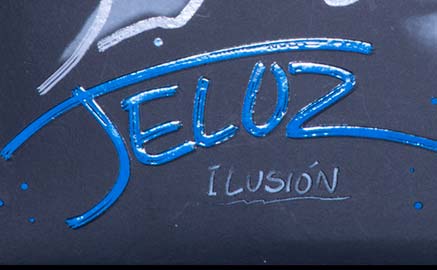 JELUZ
ILUSIÓN